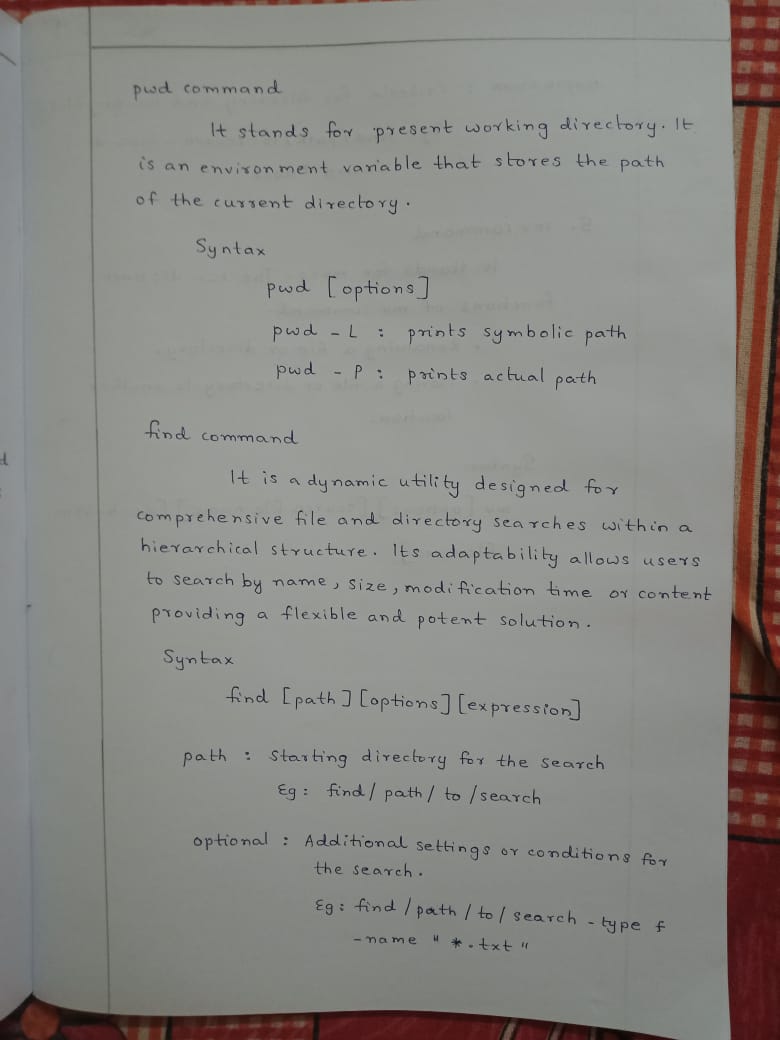 pwd command
It stands for present working directory. It
is an environment variable that stores the path
of the current directory.
Syntax
pwd [options]
pwd - L : prints symbolic path
pwd - P : prints actual path
find command
It is a dynamic utility designed for
comprehensive file and directory searches within a
hierarchical structure. Its adaptability allows users
to search by name, size, modification time or content
providing a flexible and potent solution.
Syntax
find [path] [options] [expression]
path : Starting directory for the search
Eg : find / path / to / search
optional : Additional settings or conditions for
the search.
Eg : find / path / to / search - type f
- name " * . txt "